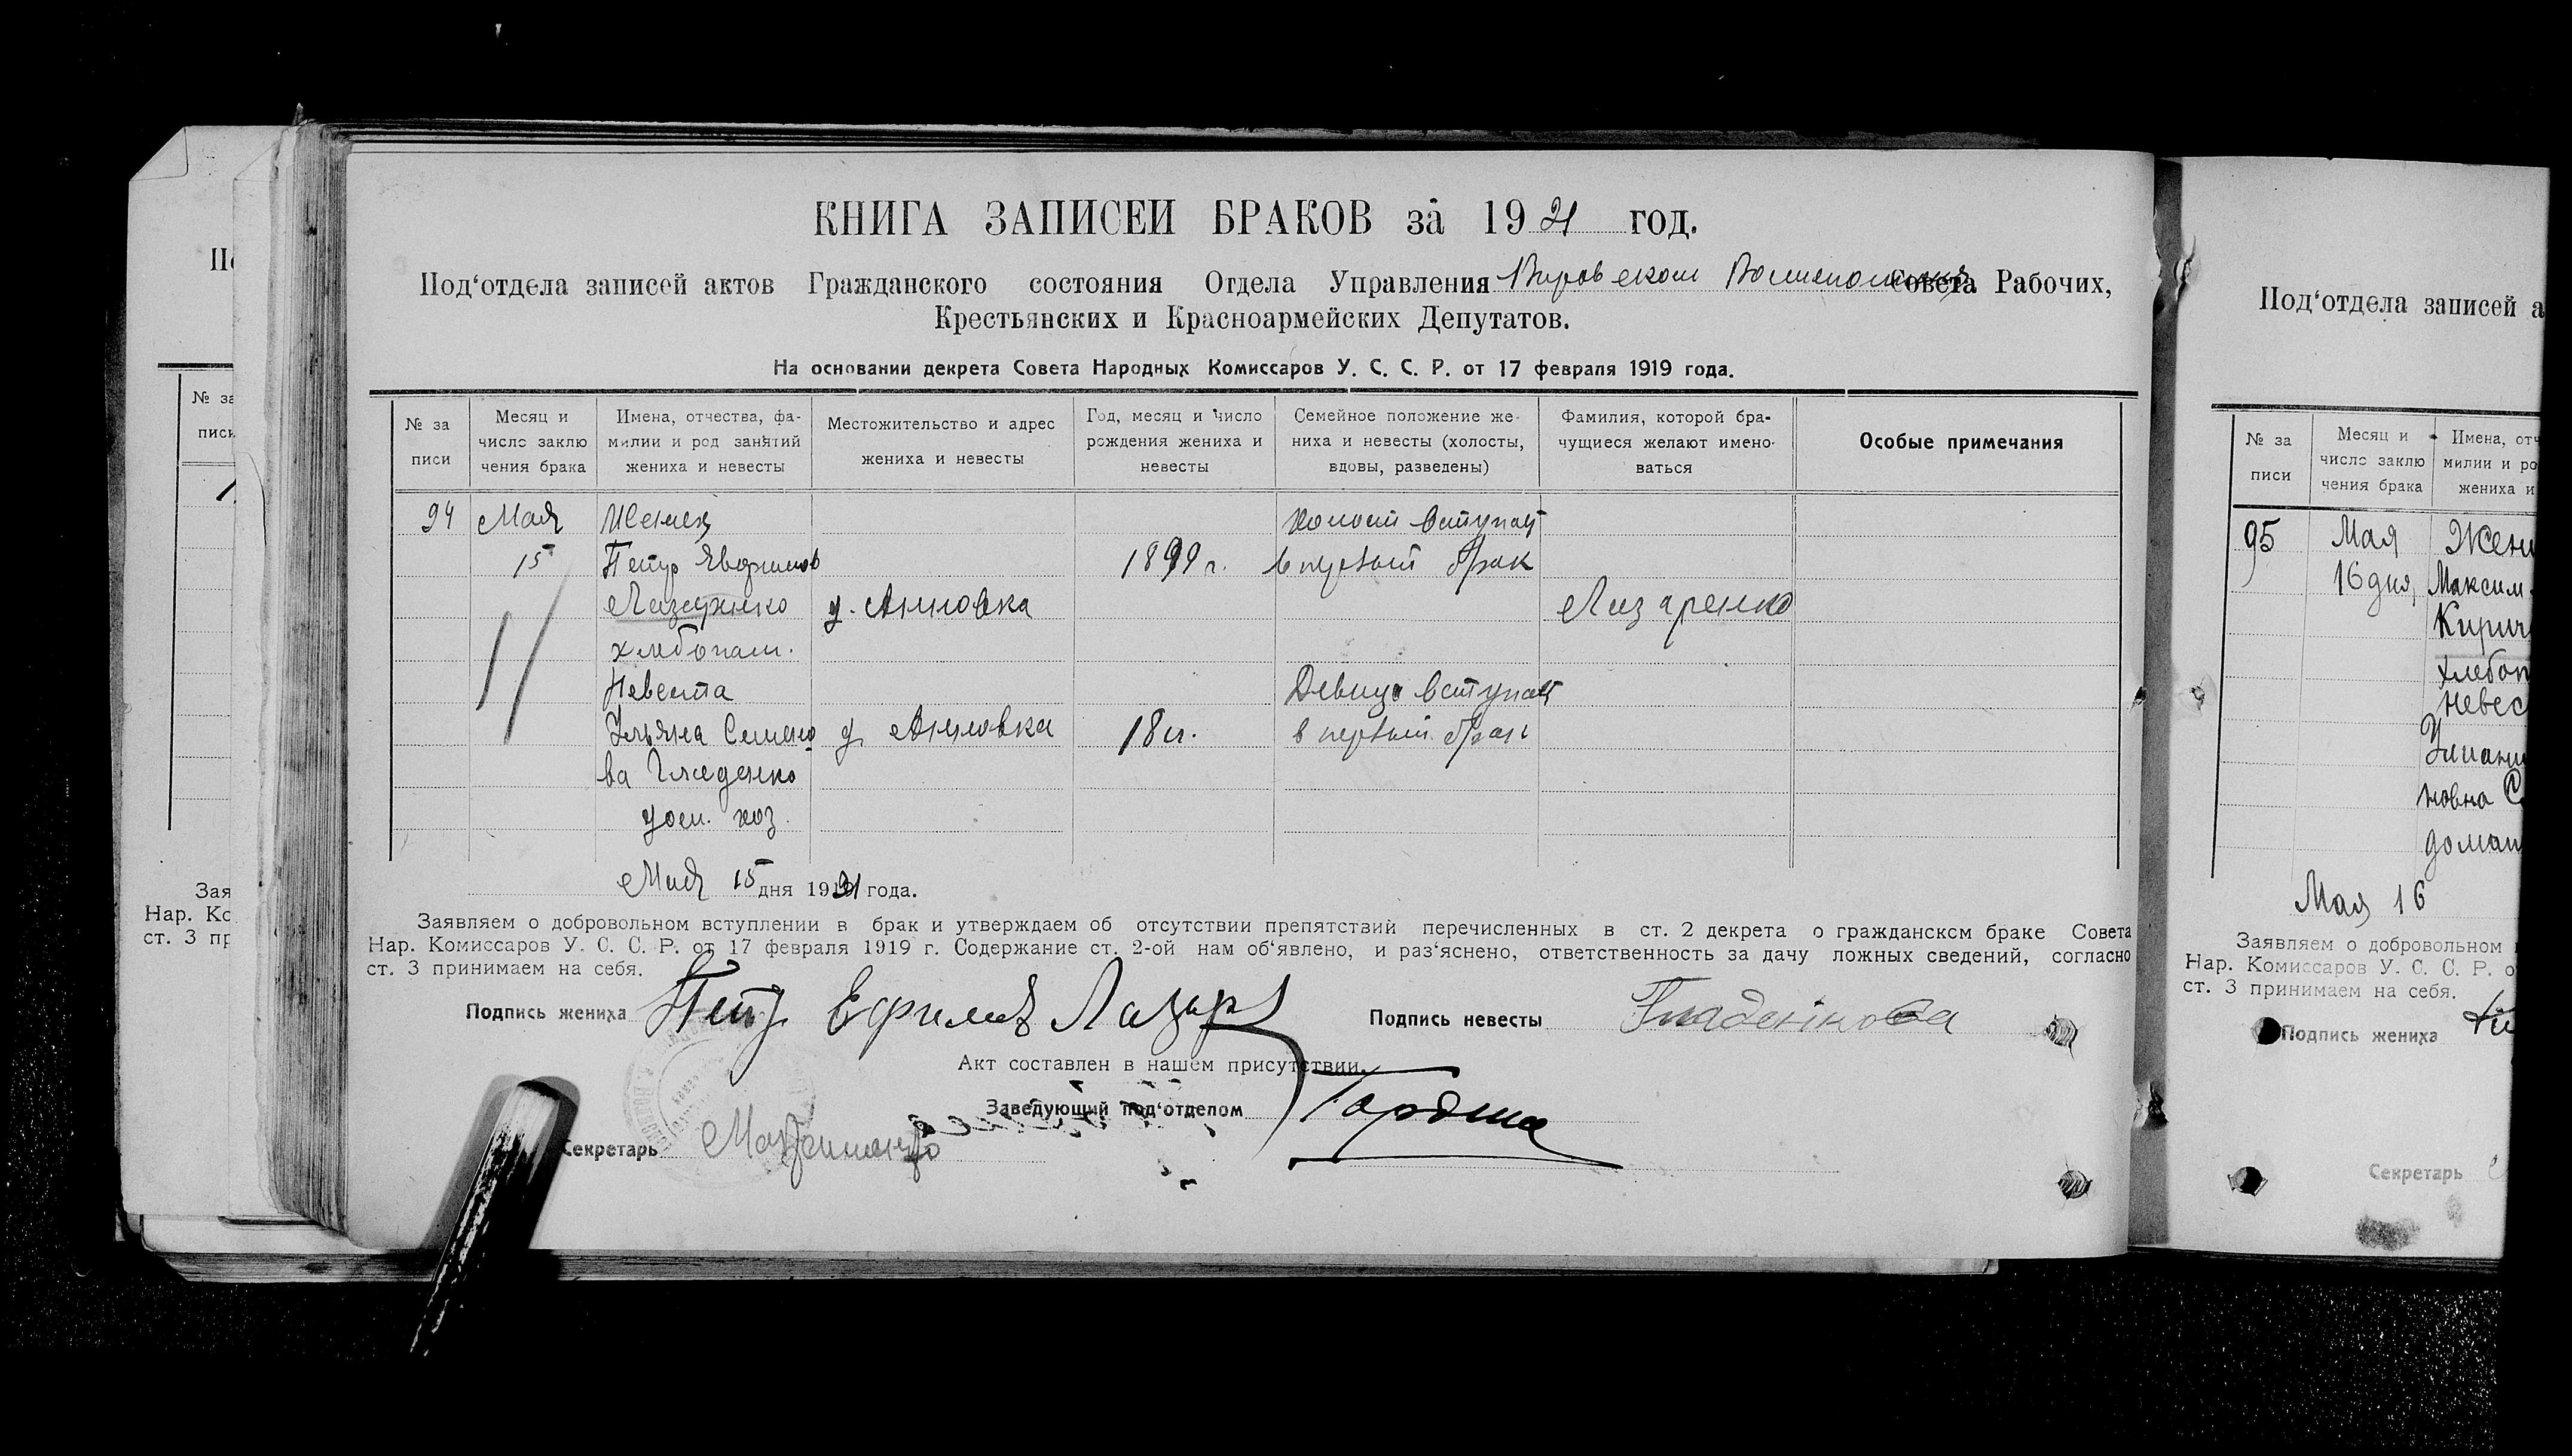 КНИГА ЗАПИСЕЙ БРАКОВ за 1921 год.
Под‘отдела записей актов Гражданского состояния Отдела Управления Совета Рабочих,
Крестьянских и Красноармейских Депутатов.
На основании декрета Совета Народных Комиссаров У. С. С. Р. от 17 февраля 1919 года.
№ за писи
Месяц и число заклю чения брака
Имена, отчества, фа- милии и род занятий жениха и невесты
Местожительство и адрес жениха и невесты
Год, месяц и число рождения жениха и невесты
Семейное положение же- ниха и невесты (холосты, вдовы, разведены)
Фамилия, которой бра- чущиеся желают имено- ваться
Особые примечания
94 Мая Жених холост вступает
15 Петр Евфимов 1899 г. в первый брак
Лазаренко д. Анновка Лазаренко
хлебопаш.
Невеста Девица вступает
Ульяна Семено д. Анновка 18 л. в первый брак
ва Гладенко
дом. хоз.
Мая 15 дня 1921 года.
Заявляем о добровольном вступлении в брак и утверждаем об отсутствии препятствий перечисленных в ст. 2 декрета о гражданском браке Совета
Нар. Комиссаров У. С. С. Р. от 17 февраля 1919 г. Содержание ст. 2-ой нам об‘явлено, и раз‘яснено, ответственность за дачу ложных сведений, согласно
ст. 3 принимаем на себя.
Подпись жениха Петр Подпись невесты
Акт составлен в нашем присутствии.
Заведующий под‘отделом
Секретарь
№ за
писи
Зая
Нар. Ко
ст. 3 пр
Под‘отдела записей а
№ за писи
Месяц и число заклю чения брака
Имена, отч милии и ро жениха и
95 Мая Жени
16 дня, Максим
Кирич
хлебоп
Невес
новна С
домаш
Мая 16
Заявляем о добровольном
Нар. Комиссаров У. С. С. Р. о
ст. 3 принимаем на себя.
Подпись жениха
Секретарь